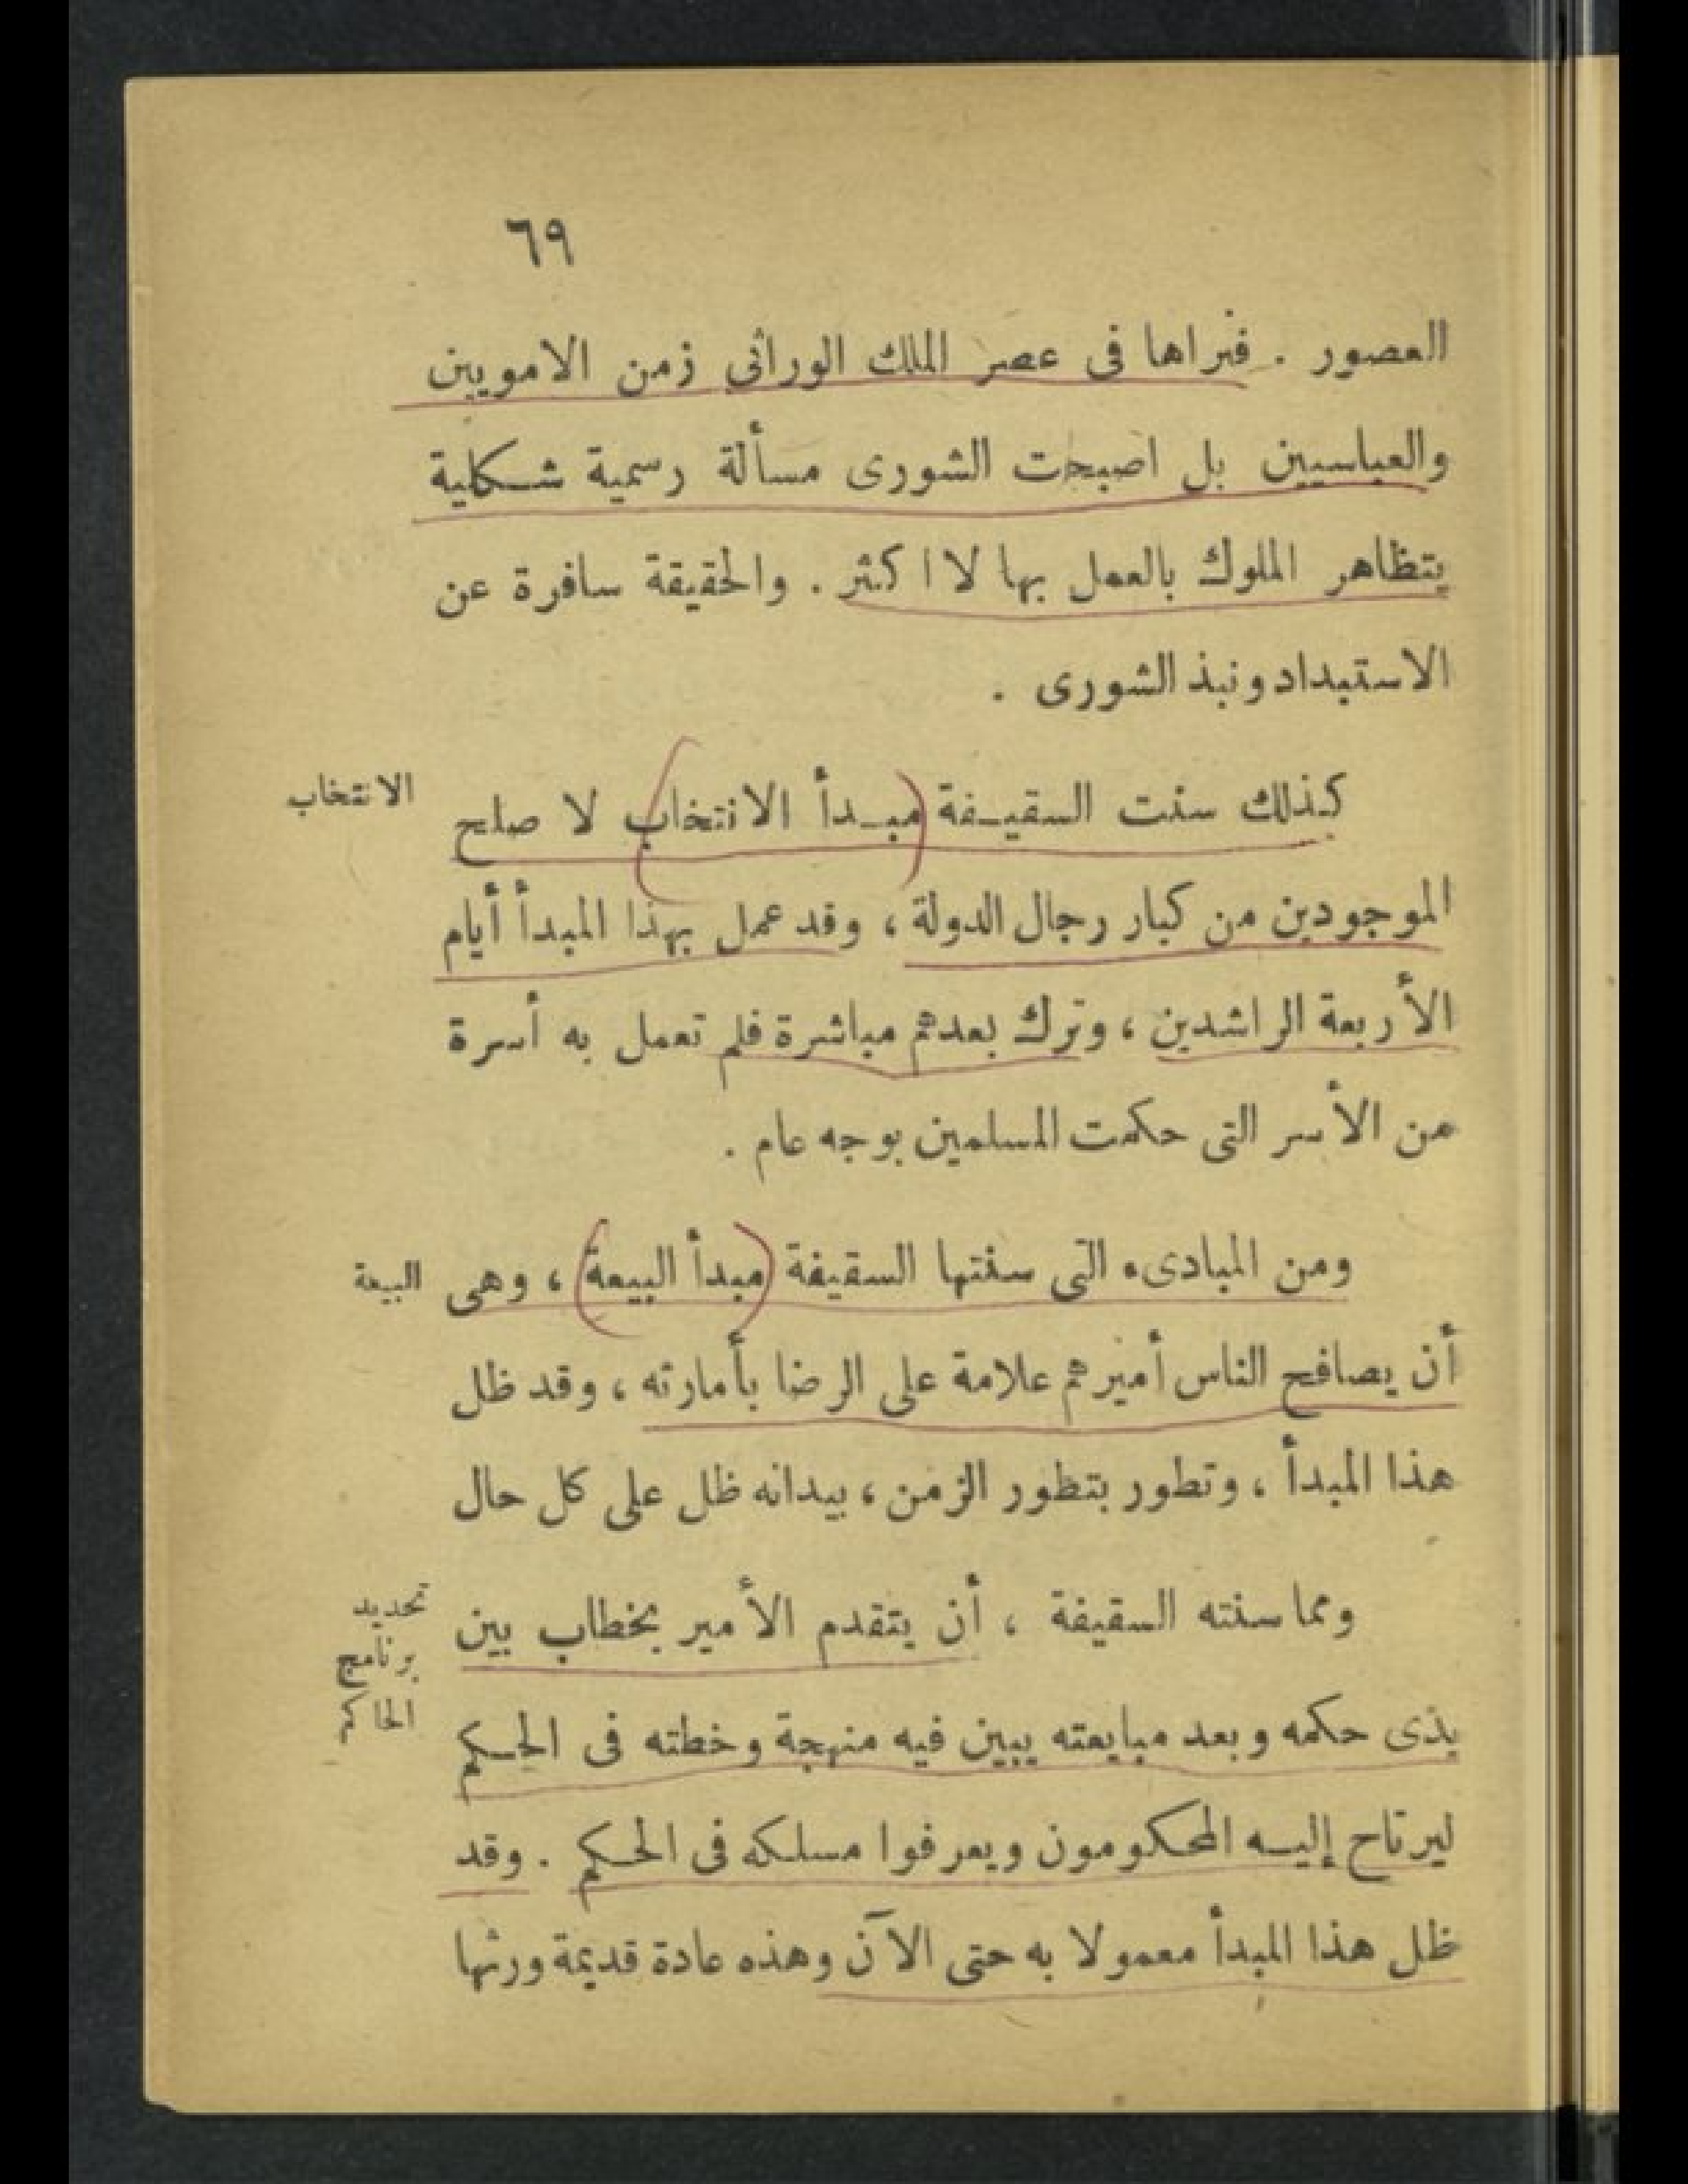 ٦٩
العصور . فنراها فى عصر الملك الوراثي زمن الامويين
والعباسيين بل اصبحت الشورى مسألة رسمية شكلية
يتظاهر الملوك بالعمل بها لا اكثر . والحقيقة سافرة عن
الاستبداد ونبذ الشورى .
الانتخاب
كذلك سنت السقيفة (مبدأ الانتخاب) لا صلح
الموجودين من كبار رجال الدولة ، وقد عمل بهذا المبدأ أيام
الأربعة الراشدين ، وترك بعدهم مباشرة فلم تعمل به أسرة
من الأسر التى حكمت المسلمين بوجه عام .
البيعة
ومن المبادىء التى سنتها السقيفة (مبدأ البيعة) ، وهى
أن يصافح الناس أميرهم علامة على الرضا بأمارته ، وقد ظل
هذا المبدأ ، وتطور بتطور الزمن ، بيدانه ظل على كل حال
تحديد
برنامج
الحاكم
ومما سنته السقيفة ، أن يتقدم الأمير بخطاب بين
يذى حكمه وبعد مبايعته يبين فيه منهجة وخطته فى الحكم
ليرتاح إليه المحكومون ويعرفوا مسلكه فى الحكم . وقد
ظل هذا المبدأ معمولا به حتى الآن وهذه عادة قديمة ورثها